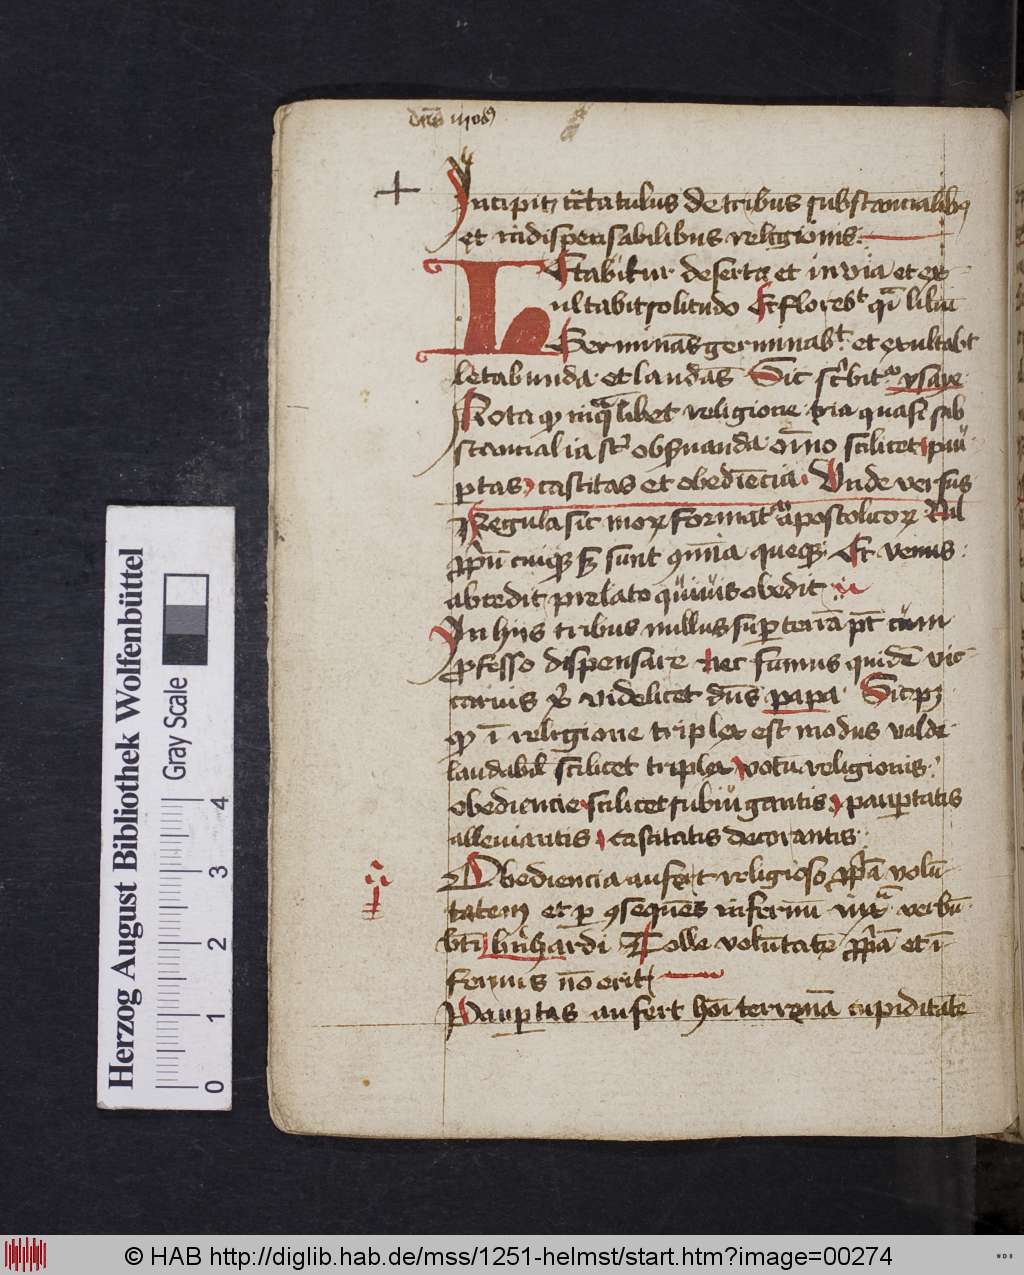 Incipit tractatulus de tribus substancialibus
et indispensabilibus religionis
LEtabitur deserta et invia et ex
ultabit solitudo Et florebit quasi lilium
Germinans germinabit et exultabit
letabunda et laudans Sic scribitur ysaye
Nota quod in qualibet religione tria quasi sub
stancialia sunt observanda omnino scilicet pau
pertas castitas et obediencia Unde versus
Regula sic morum formatur apostolicorum Nil
proprium cuique sed sunt communia queque Et venus
abcedit prelato quivis obedit
In hiis tribus nullus super terram potest cum
professo dispensare nec summus quidem vic
carius Christi videlicet dominus papa Sic patet
quod in religione triplex est modus valde
laudabilis scilicet triplex votum religionis
obediencie scilicet subiugantis paupertatis
alleviantis castitatis decorantis
Obediencia aufert religioso propriam volun
tatem et per consequens infernum iuxta verbum
beati bernhardi Tolle voluntatem propriam et in
fernus non erit
Paupertas aufert homini terrenam cupiditatem
Herzog August Bibliothek Wolfenbüttel
Gray Scale
0 1 2 3 4
© HAB http://diglib.hab.de/mss/1251-helmst/start.htm?image=00274